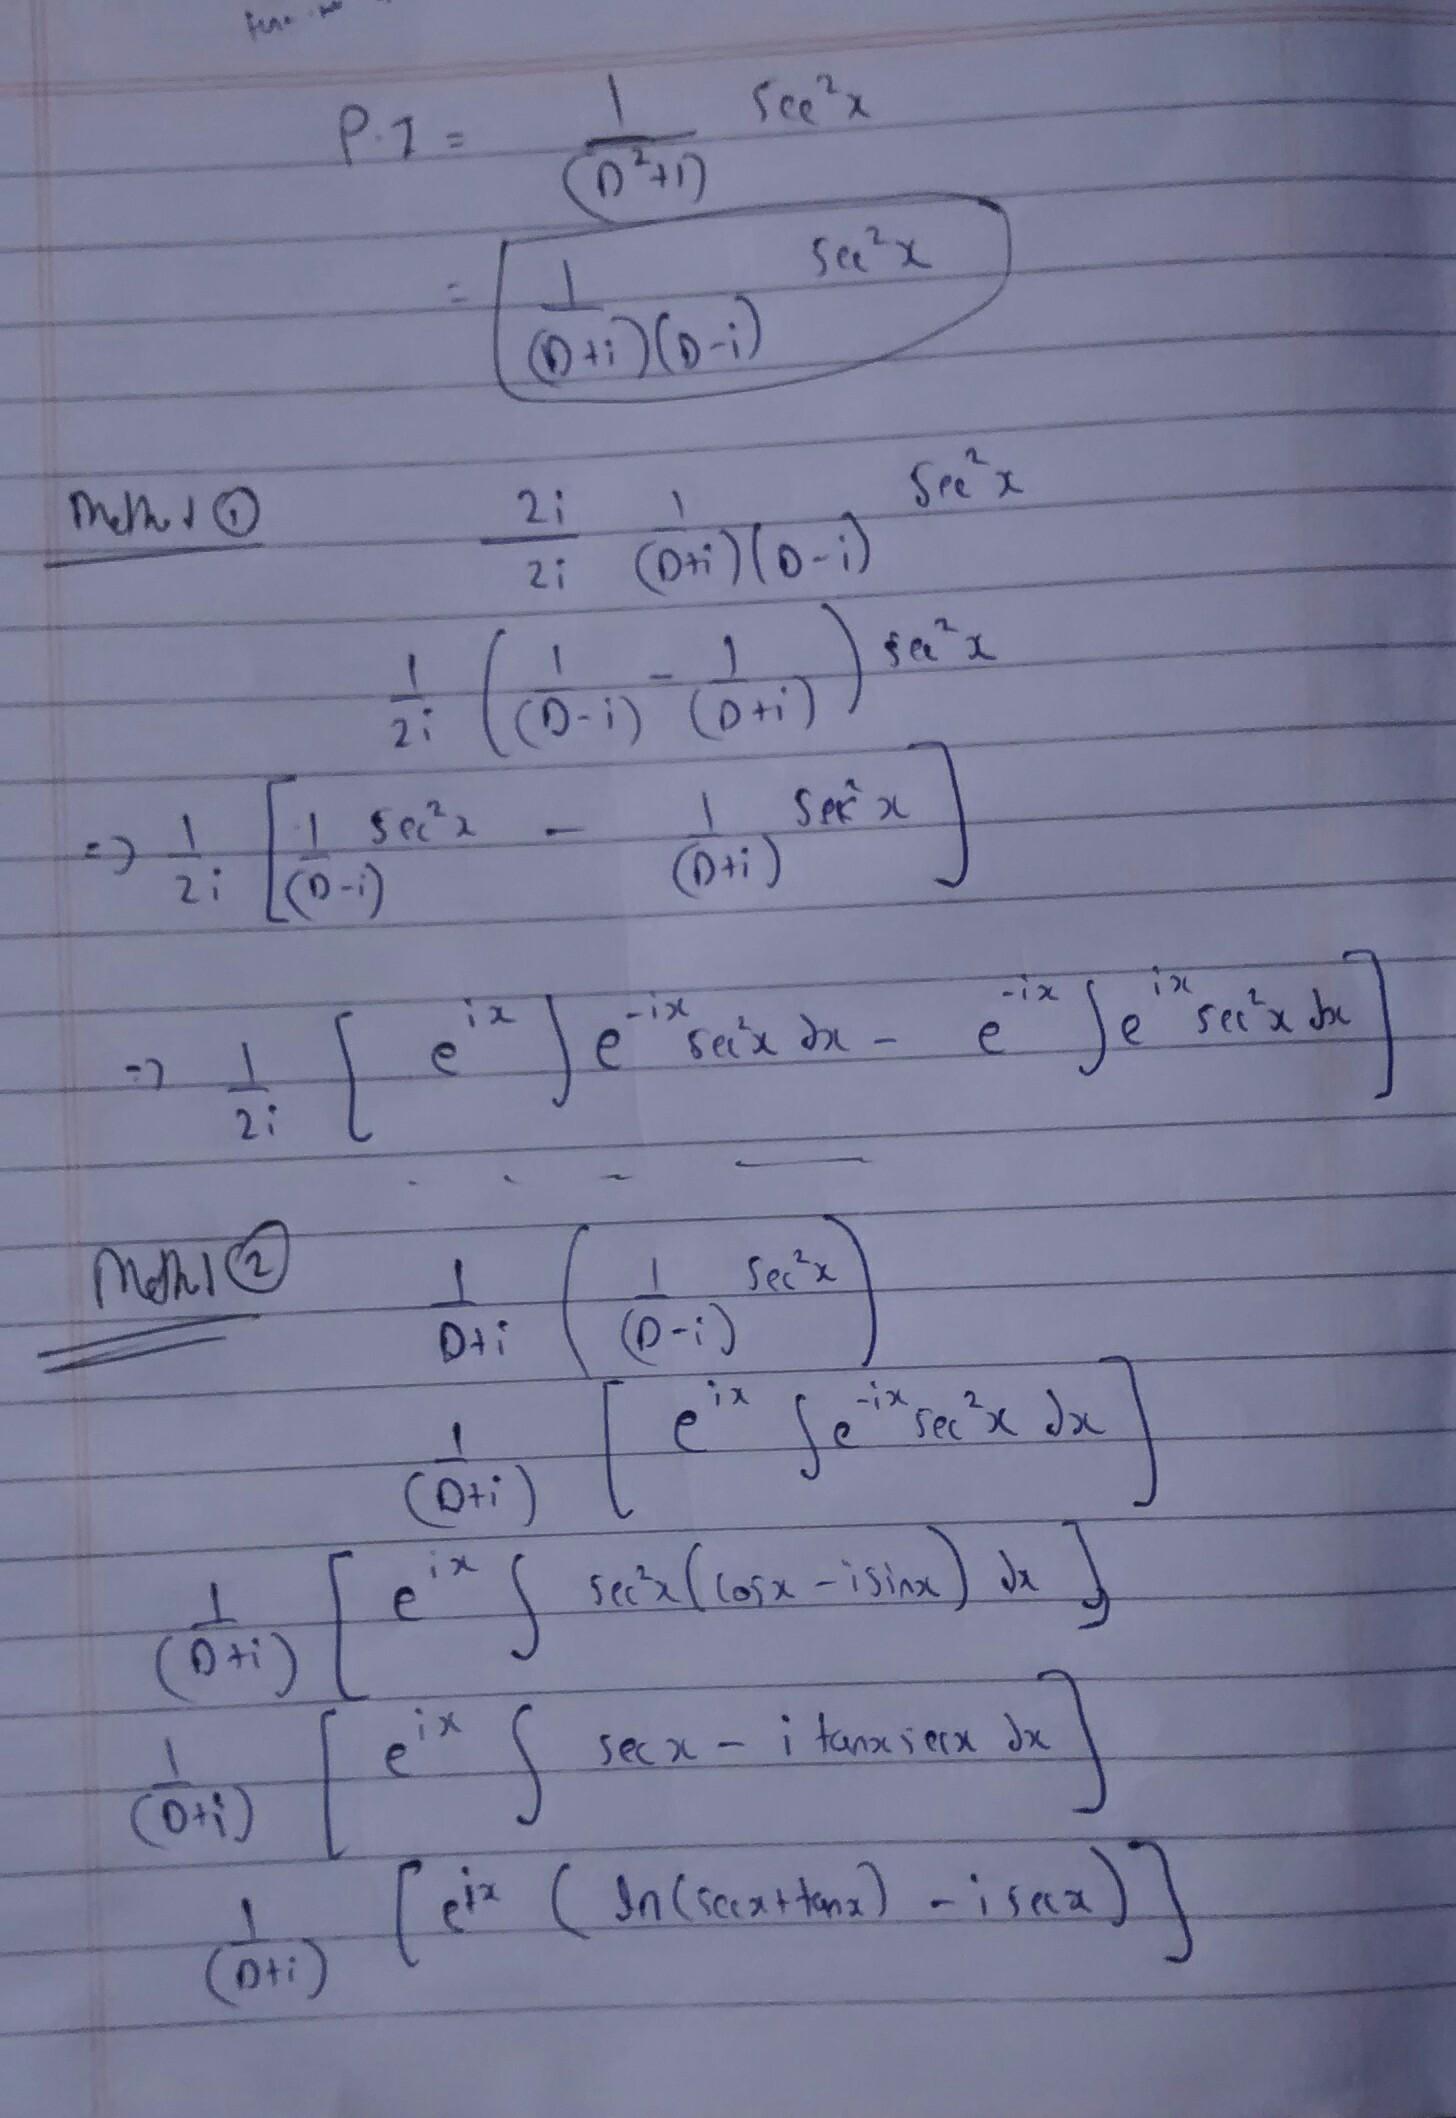 P.I = 1/(D²+1) sec²x
= 1/((D+i)(D-i)) sec²x
Method ① 2i/2i 1/((D+i)(D-i)) sec²x
1/2i (1/(D-i) - 1/(D+i)) sec²x
=> 1/2i [1/(D-i) sec²x - 1/(D+i) sec²x]
=> 1/2i [e^{ix} ∫e^{-ix} sec²x dx - e^{-ix} ∫e^{ix} sec²x dx]
Method ② 1/D+i (1/(D-i) sec²x)
1/(D+i) [e^{ix} ∫e^{-ix} sec²x dx]
1/(D+i) [e^{ix} ∫ sec²x(cosx - isinx) dx]
1/(D+i) [e^{ix} ∫ secx - i tanx secx dx]
1/(D+i) [e^{ix} (ln(secx+tanx) - i secx)]